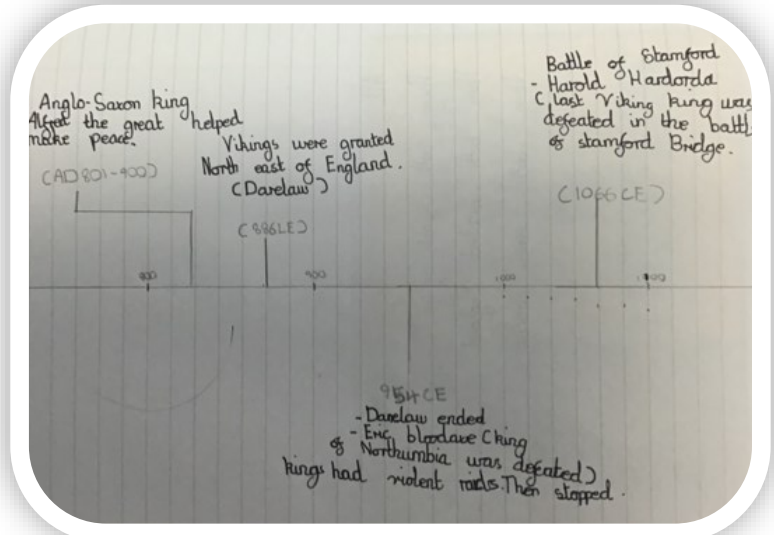 Anglo-Saxon king
Alfred the great helped
make peace.
(AD801-900)
Vikings were granted
North east of England.
(Danelaw)
(886CE)
Battle of Stamford
- Harold Hardorda
(last Viking king was
defeated in the batt
of stamford Bridge.
(1066CE)
800
900
1000
1100
954CE
- Danelaw ended
- Eric bloodaxe (king
of Northumbia was defeated)
kings had violent raids. Then stopped.